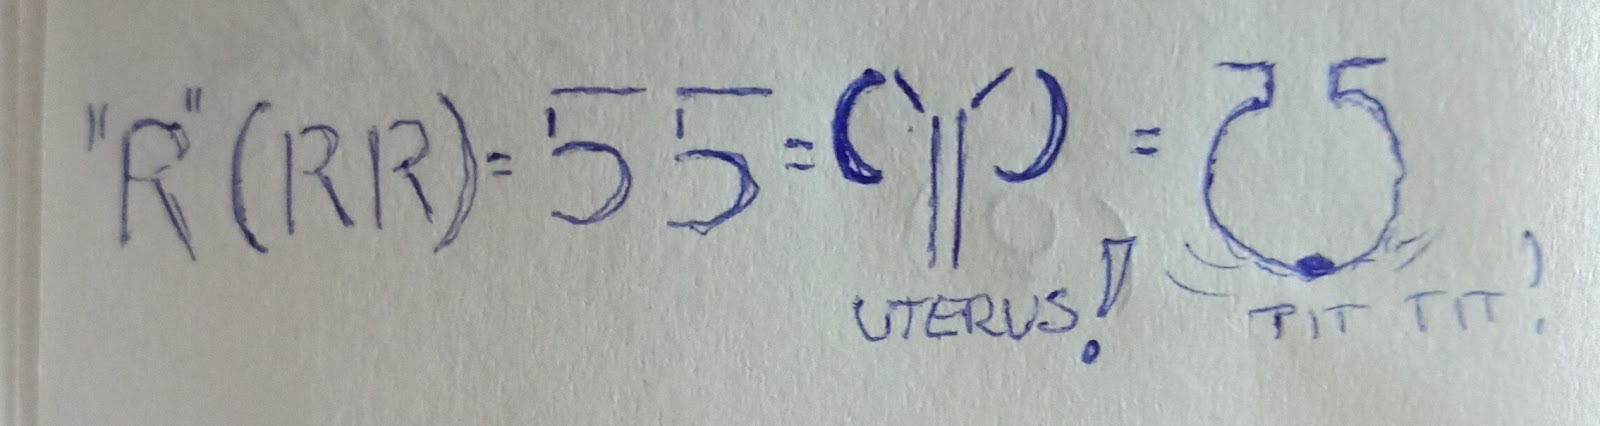 "R" (RR) = 5 5 = = 
UTERUS! TIT TIT!